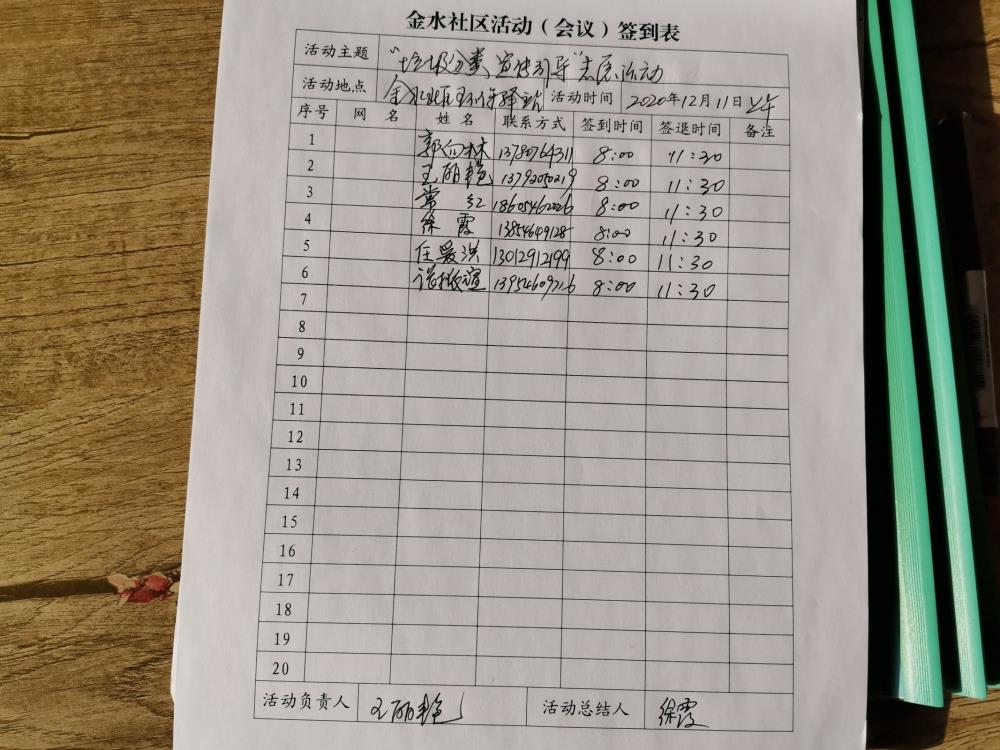 金水社区活动（会议）签到表
活动主题 “垃圾分类 宣传引导”志愿活动
活动地点 金水社区环保驿站 活动时间 2020年12月11日上午
序号 网 名 姓 名 联系方式 签到时间 签退时间 备注
1 郭向林 8:00 11:30
2 王丽艳 8:00 11:30
3 常红 8:00 11:30
4 徐霞 8:00 11:30
5 任爱洪 13012912199 8:00 11:30
6 8:00 11:30
7
8
9
10
11
12
13
14
15
16
17
18
19
20
活动负责人 王丽艳 活动总结人 徐霞